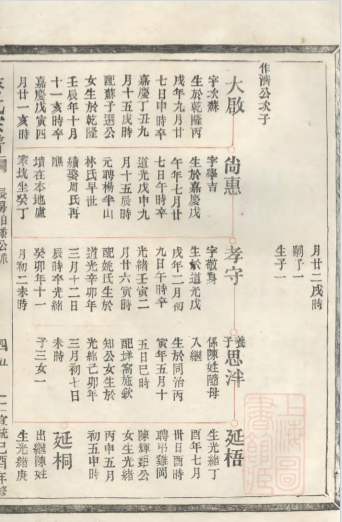 作濟公次子
大啟
字次蘇
生於乾隆丙
戌年九月廿
七日申時卒
嘉慶丁丑九
月十五戌時
配蘇子選公
女生於乾隆
壬辰年十月
十一亥時卒
嘉慶戊寅四
月廿一亥時
尚惠
字學吉
生於嘉慶戊
午年七月廿
七日寅時卒
道光戊申九
月十五辰時
元聘楊半山
林氏早世
續娶周氏再
醮
墳在本地盧
家坑坐癸丁
月廿二戌時
嗣子一
生子一
孝守
字敬身
生於道光戊
戌年二月初
九日午時卒
光緒壬寅二
月廿六寅時
配姚氏生於
道光辛卯年
三月十二日
辰時卒光緒
癸卯年十一
月初二未時
養子
思泮
係陳姓隨母
入繼
生於同治丙
寅年五月十
五日巳時
配垟窩施欽
知公女生於
光緒己卯年
三月初七日
未時
子三女一
延梧
生光緒丁
酉年七月
卅日酉時
聘吊雞岡
陳輝鉅公
女生光緒
丙申五月
初五申時
延桐
出繼陳姓
生光緒庚
四五
宣統己酉年修